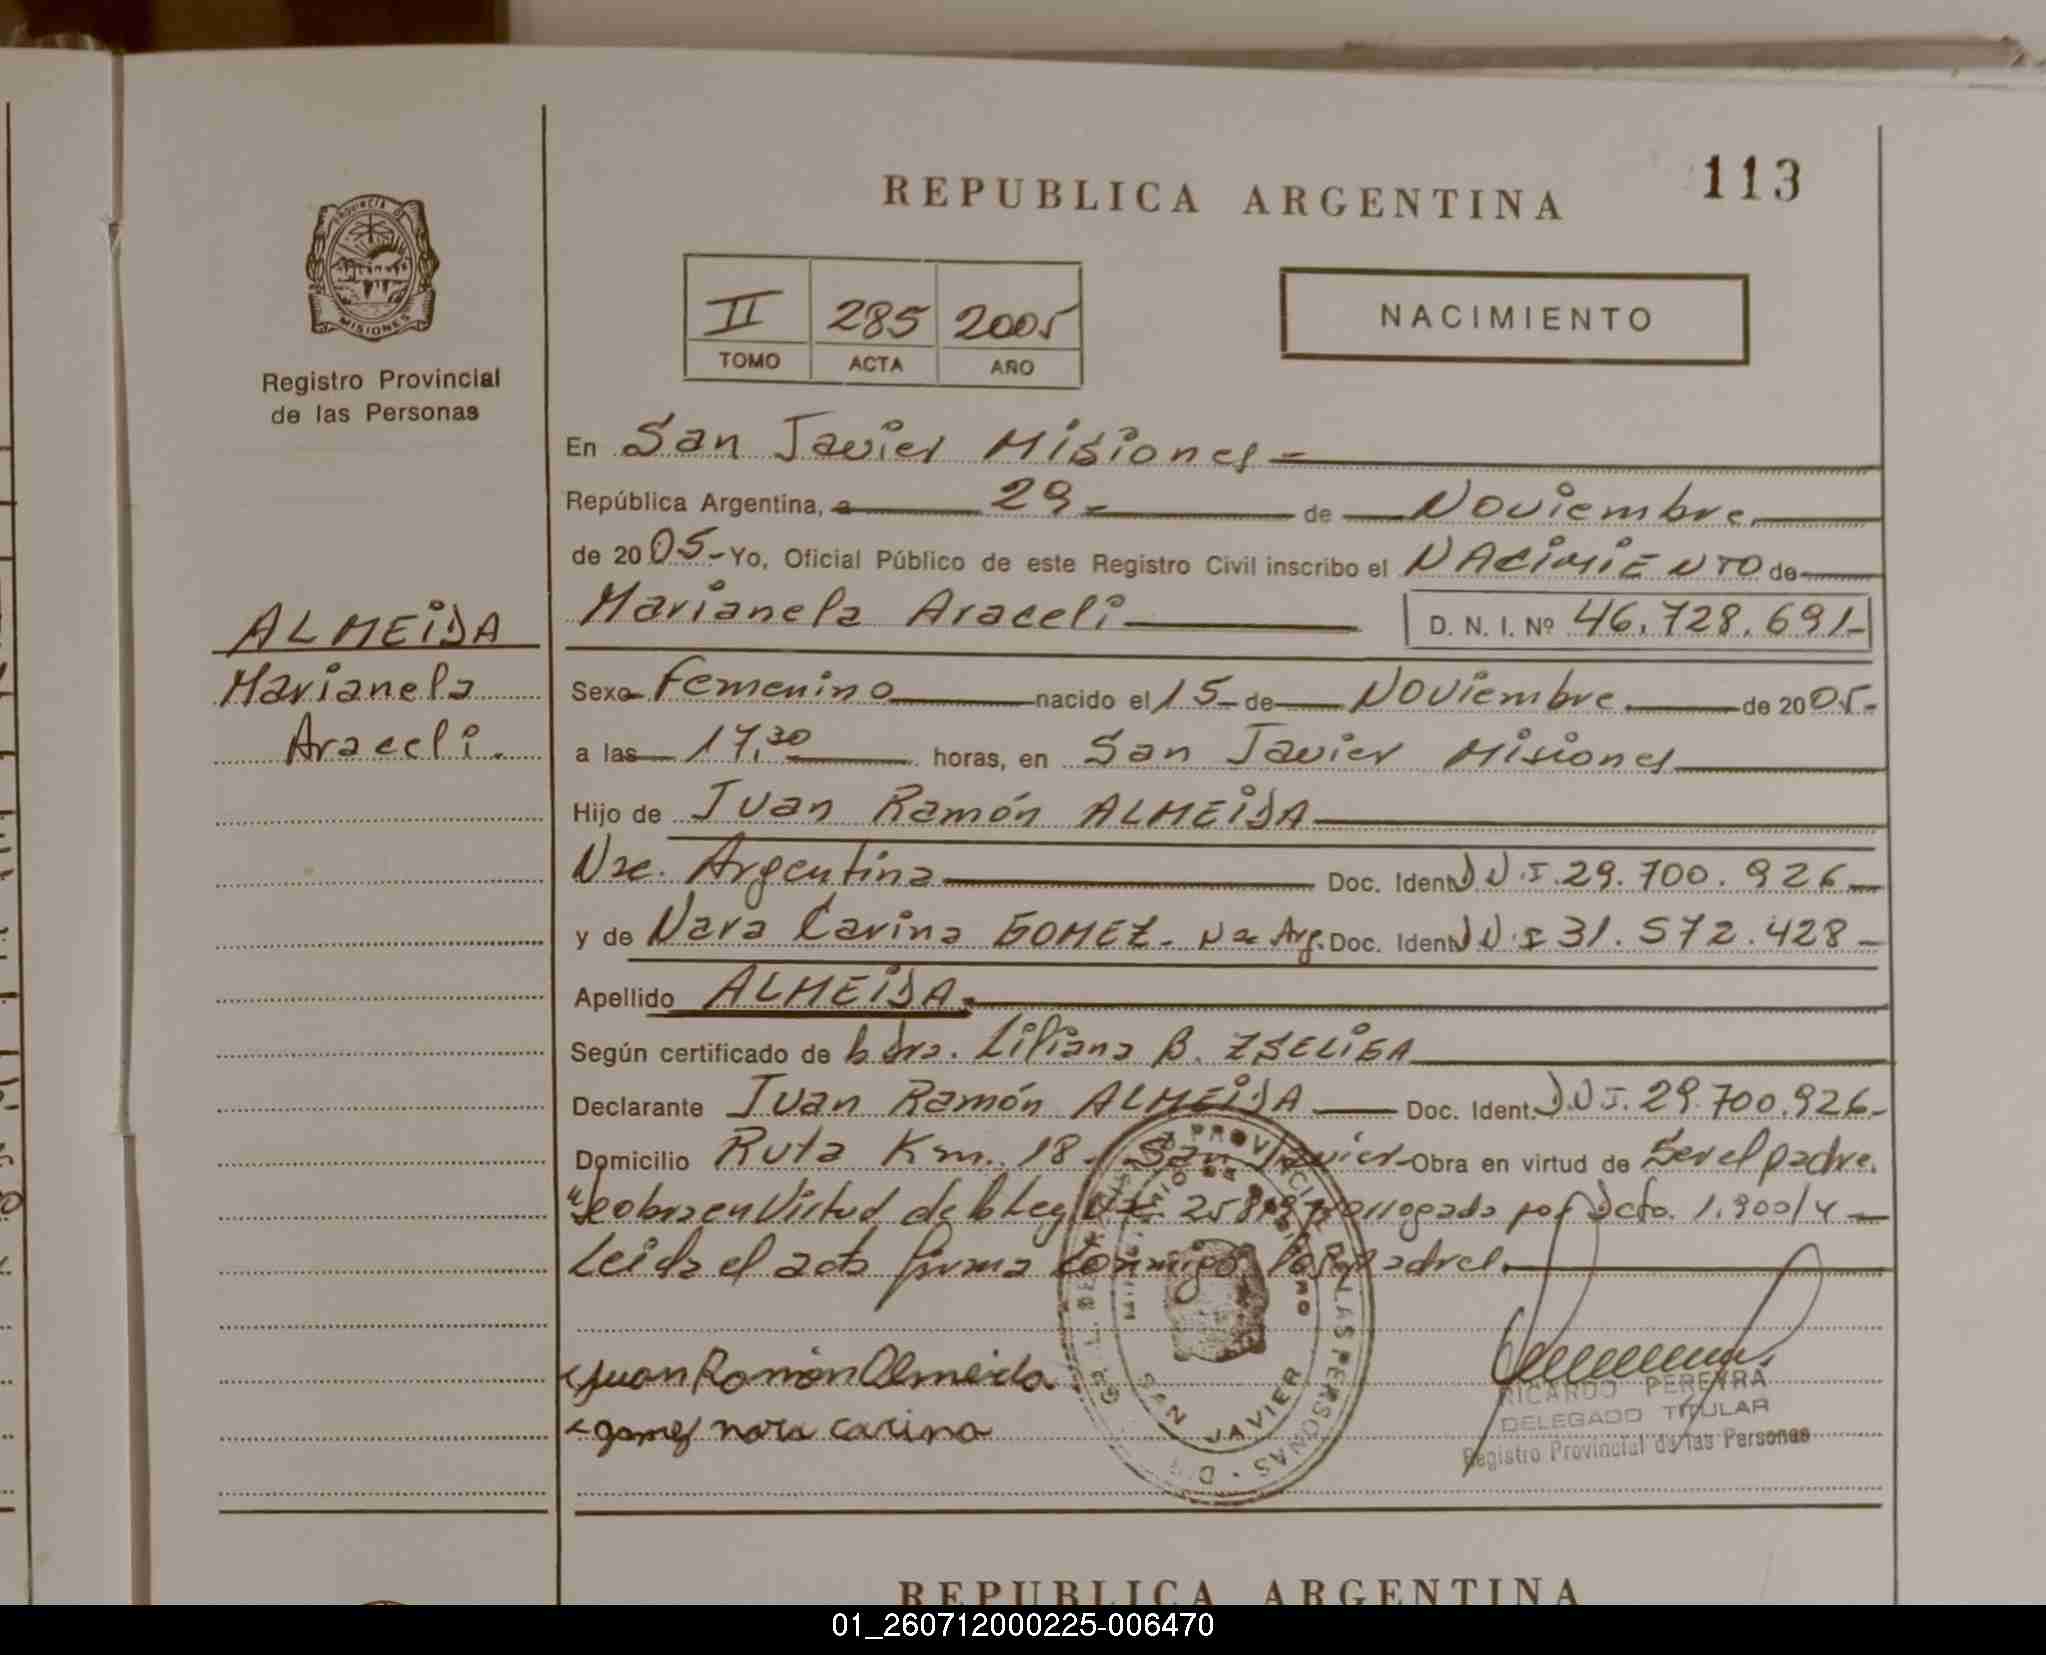 REPUBLICA ARGENTINA
113
PROVINCIA DE
MISIONES
Registro Provincial
de las Personas
II 285 2005
TOMO ACTA AÑO
NACIMIENTO
En San Javier Misiones
República Argentina, a 29 de Noviembre
de 2005 Yo, Oficial Público de este Registro Civil inscribo el NACIMIENTO de
Marianela Araceli D. N. I. Nº 46.728.691
ALMEIDA
Marianela
Araceli.
Sexo Femenino nacido el 15 de Noviembre de 2005
a las 17,30 horas, en San Javier Misiones
Hijo de Juan Ramón ALMEIDA
Nac. Argentina Doc. Ident. DNI. 29.700.926
y de Nara Carina GOMEZ Nac Arg. Doc. Ident. DNI 31.572.428
Apellido ALMEIDA
Según certificado de la Dra. Liliana B. ZSELIGA
Declarante Juan Ramón ALMEIDA Doc. Ident. DNI. 29.700.926
Domicilio Ruta Km. 18 San Javier Obra en virtud de Ser el padre.
Se obra en Virtud de la Ley prorrogada por Dcto. 1.900/4
Leida el acta firma conmigo los padres.
Juan Ramón Almeida
gomez nora carina
SAN JAVIER
RICARDO PEREYRA
DELEGADO TITULAR
Registro Provincial de las Personas
REPUBLICA ARGENTINA
01_260712000225-006470